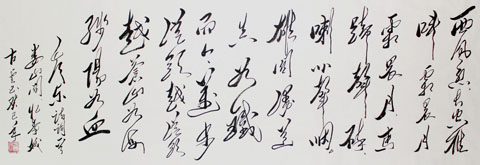 西风烈长空雁
叫霜晨月
霜晨月马
蹄声碎
喇叭声咽
雄关漫道
真如铁
而今迈步
从头越从头
越苍山如海
残阳如血
娄山关
癸巳